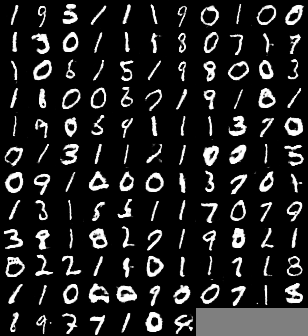 1 9 3 1 1 1 9 0 1 0 0
1 3 0 1 1 1 8 0 7 1 7
1 0 6 1 5 1 9 8 0 0 3
1 1 0 0 6 7 1 9 1 8 1
1 9 0 5 9 1 1 1 3 7 0
0 1 3 1 1 1 0 0 1 5
0 9 1 0 0 0 1 3 7 0 1
1 3 1 5 5 1 1 7 0 7 9
3 9 1 8 2 7 1 9 0 2 1
8 2 2 1 9 0 1 1 7 1 8
1 1 0 0 0 9 0 0 7 1 8
8 9 7 7 1 0 9